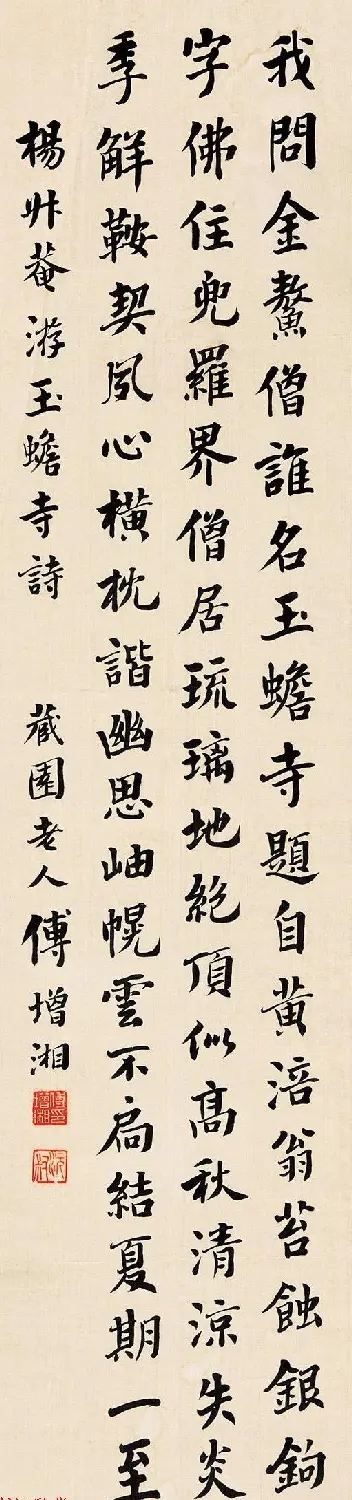 我問金鰲僧誰名玉蟾寺題自黃涪翁苔蝕銀鉤
字佛住兜羅界僧居琉璃地絶頂似高秋清涼失炎
季解鞍契夙心橫枕諧幽思岫幌雲不扃結夏期一至
楊升菴游玉蟾寺詩 藏園老人傅增湘
傅印增湘
沅叔